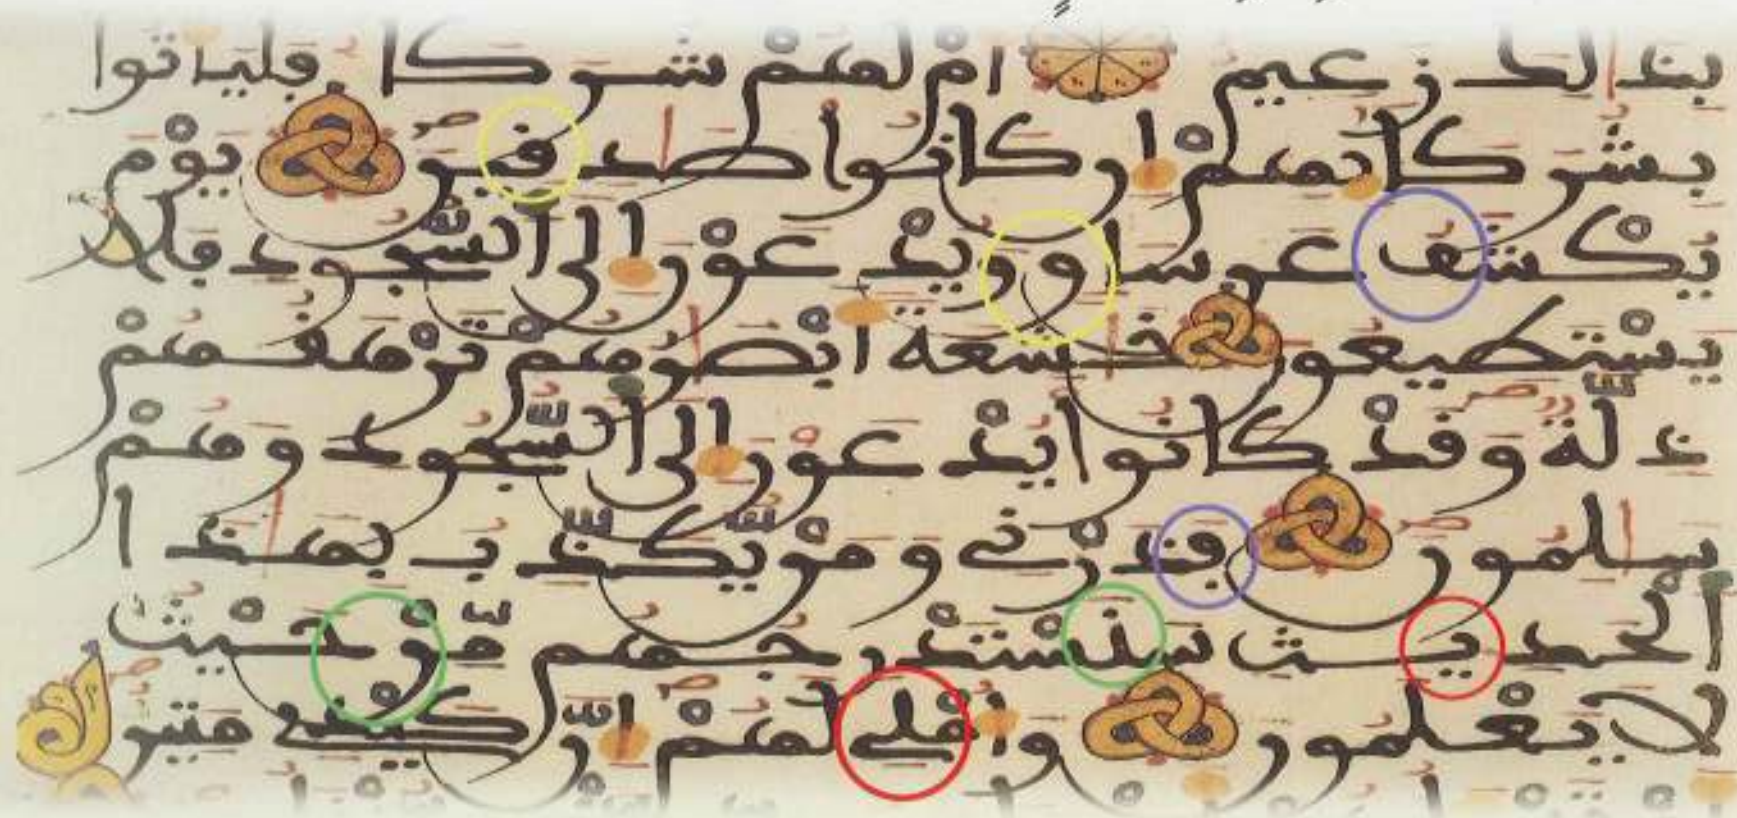 بذٰلك زعيم ام لهم شركا فلياتوا
بشركايهم ان كانوا صٰدقين يوم
يكشف عن ساق ويدعون الى السجود فلا
يستطيعون خٰشعة ابصٰرهم ترهقهم
ذلة وقد كانوا يدعون الى السجود وهم
سٰلمون فذرني ومن يكذب بهٰذا
الحديث سنستدرجهم من حيث
لا يعلمون واملي لهم ان كيدي متين